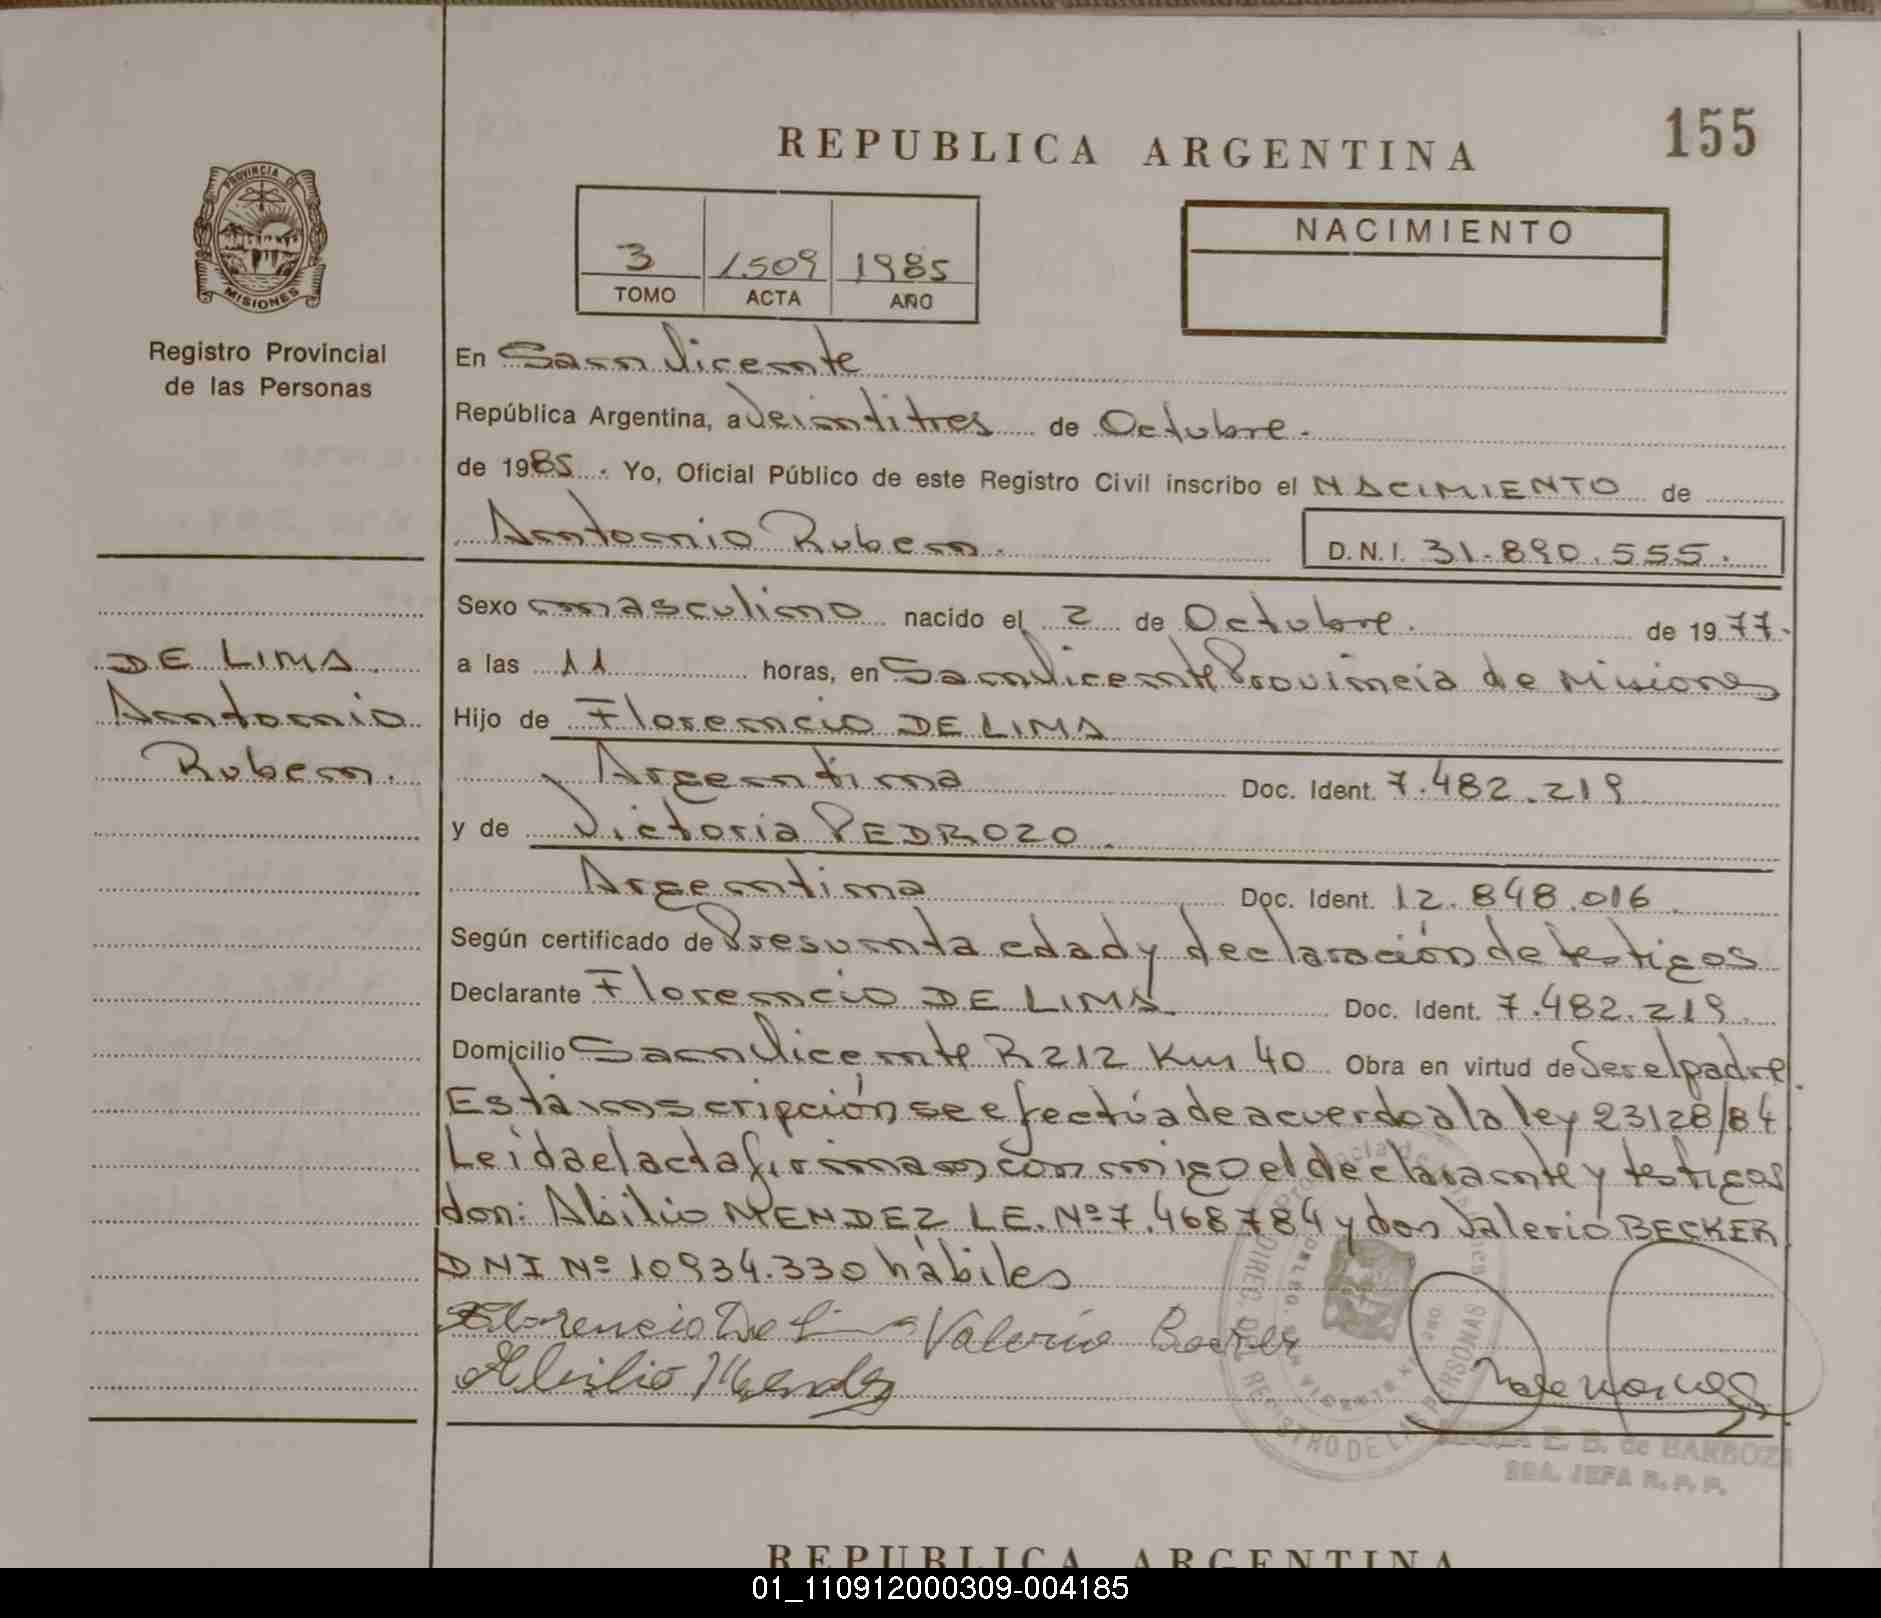 155
REPUBLICA ARGENTINA
PROVINCIA DE
MISIONES
Registro Provincial
de las Personas
3 1.509 1985
TOMO ACTA AÑO
NACIMIENTO
En San Vicente
República Argentina, a Veintitres de Octubre.
de 1985. Yo, Oficial Público de este Registro Civil inscribo el NACIMIENTO de
Antonio Ruben.
D.N.I. 31.890.555.
DE LIMA
Antonio
Ruben.
Sexo masculino nacido el 2 de Octubre. de 1977.
a las 11 horas, en San Vicente Provincia de Misiones
Hijo de Florencio DE LIMA
Argentina Doc. Ident. 7.482.219
y de Victoria PEDROZO.
Argentina Doc. Ident. 12.848.016.
Según certificado de Presunta edad y declaración de testigos
Declarante Florencio DE LIMA. Doc. Ident. 7.482.219.
Domicilio San Vicente R 212 Km 40 Obra en virtud de Ser el padre.
Esta inscripción se efectúa de acuerdo a la ley 23128/84
Leida el acta firman conmigo el declarante y testigos
don: Abilio MENDEZ L.E. Nº 7.468784 y don Valerio BECKER
DNI Nº 10934.330 hábiles
Florencio De Lima Valerio Becker
Abilio Mendez
DIREC. DEL REGISTRO DE LAS PERSONAS
E. B. de BARBOZA
JEFA R. P. P.
REPUBLICA ARGENTINA
01_110912000309-004185